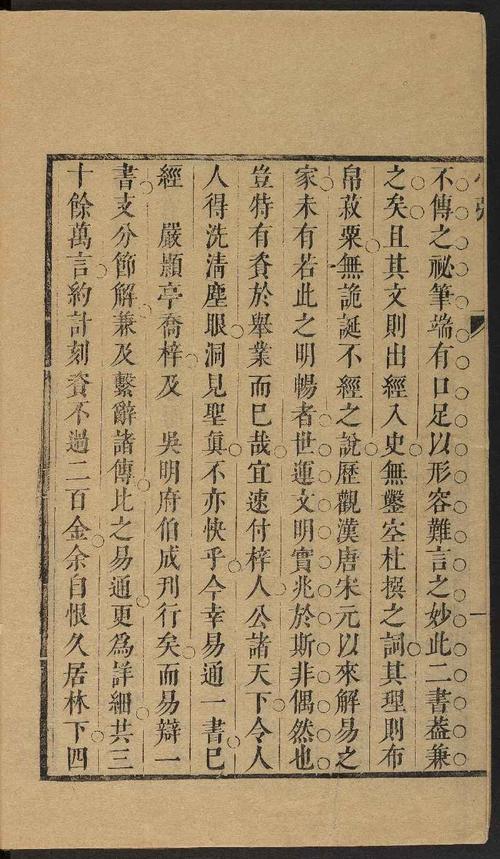 不傳之祕筆端有口足以形容難言之妙此二書葢兼
之矣且其文則出經入史無鑿空杜撰之詞其理則布
帛菽粟無詭誕不經之說歷觀漢唐宋元以來解易之
家未有若此之明暢者世運文明實兆於斯非偶然也
豈特有資於舉業而已哉宜速付梓人公諸天下令人
人得洗清塵眼洞見聖眞不亦快乎今幸易通一書已
經　嚴顥亭喬梓及　吳明府伯成刊行矣而易辯一
書支分節解兼及繫辭諸傳比之易通更爲詳細共三
十餘萬言約計刻資不過二百金余自恨久居林下四